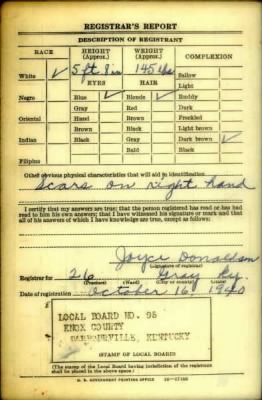 REGISTRAR'S REPORT
DESCRIPTION OF REGISTRANT
RACE
HEIGHT (Approx.)
WEIGHT (Approx.)
COMPLEXION
White ✓
5 ft 8 in
145 lbs
Sallow
EYES
HAIR
Light
Negro
Blue ✓
Blonde ✓
Ruddy
Gray
Red
Dark
Oriental
Hazel
Brown
Freckled
Brown
Black
Light brown
Indian
Black
Gray
Dark brown ✓
Bald
Black
Filipino
Other obvious physical characteristics that will aid in identification
Scars on right hand
I certify that my answers are true; that the person registered has read or has had
read to him his own answers; that I have witnessed his signature or mark and that
all of his answers of which I have knowledge are true, except as follows:
Joyce Donaldson
(Signature of registrar)
Registrar for 26 Gray Ky.
(Precinct) (Ward) (City or county) (State)
Date of registration October 16, 1940
LOCAL BOARD NO. 96
KNOX COUNTY
BARBOURVILLE, KENTUCKY
(STAMP OF LOCAL BOARD)
(The stamp of the Local Board having jurisdiction of the registrant
shall be placed in the above space.)
U. S. GOVERNMENT PRINTING OFFICE